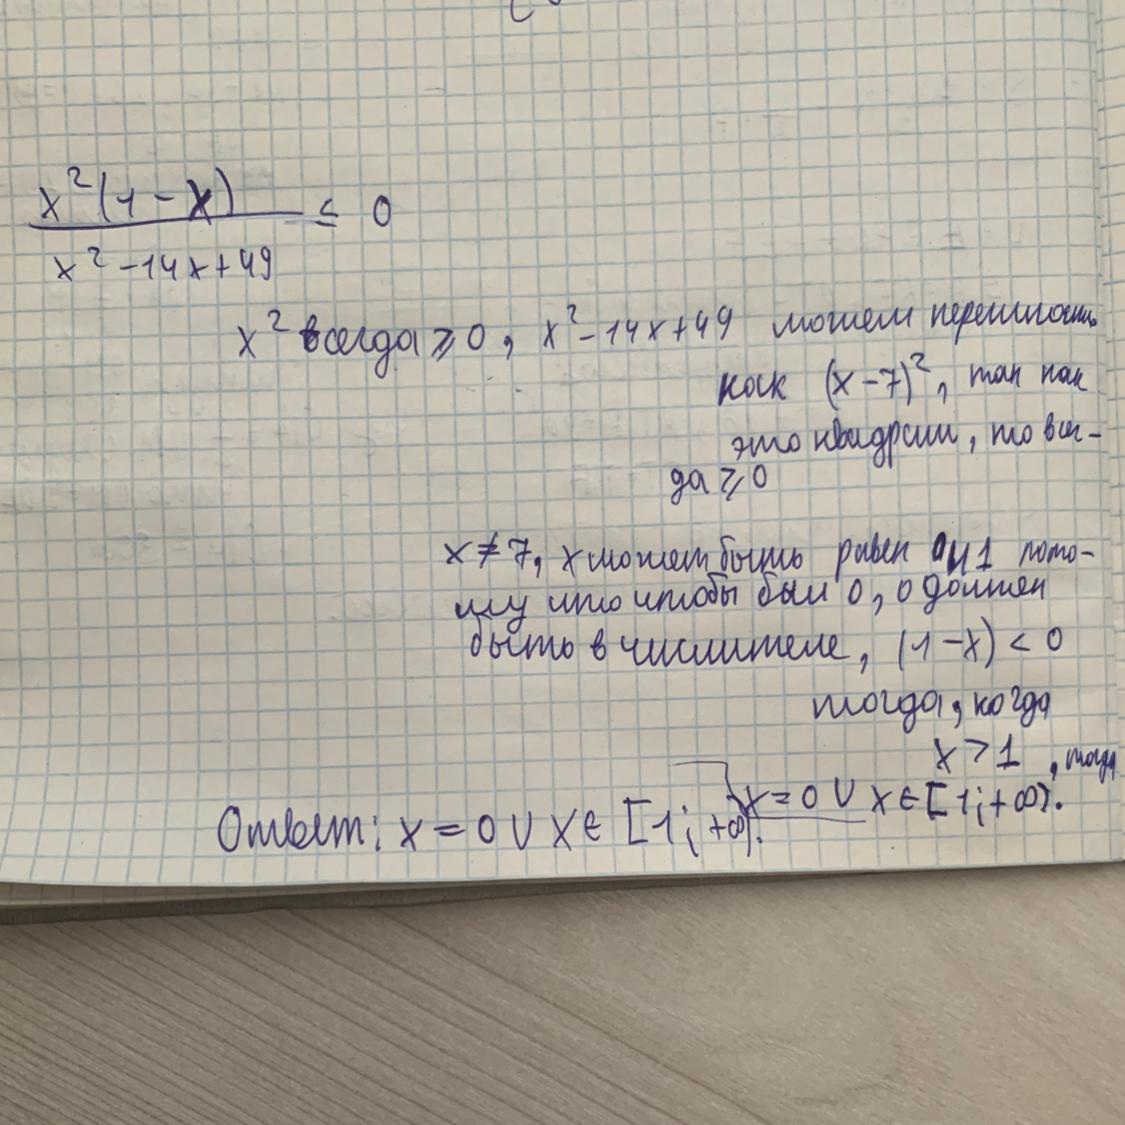 x²(1-x)
≤ 0
x²-14x+49
x² всегда ≥ 0, x²-14x+49 можем переписать
как (x-7)², так как
это квадрат, то все-
да ≥ 0
x ≠ 7, x может быть равен 0 и 1 пото-
му что чтобы был 0, 0 должен
быть в числителе, (1-x) < 0
тогда, когда
x > 1, тогда
x = 0 ∪ x ∈ [1; +∞).
Ответ: x = 0 ∪ x ∈ [1; +∞).